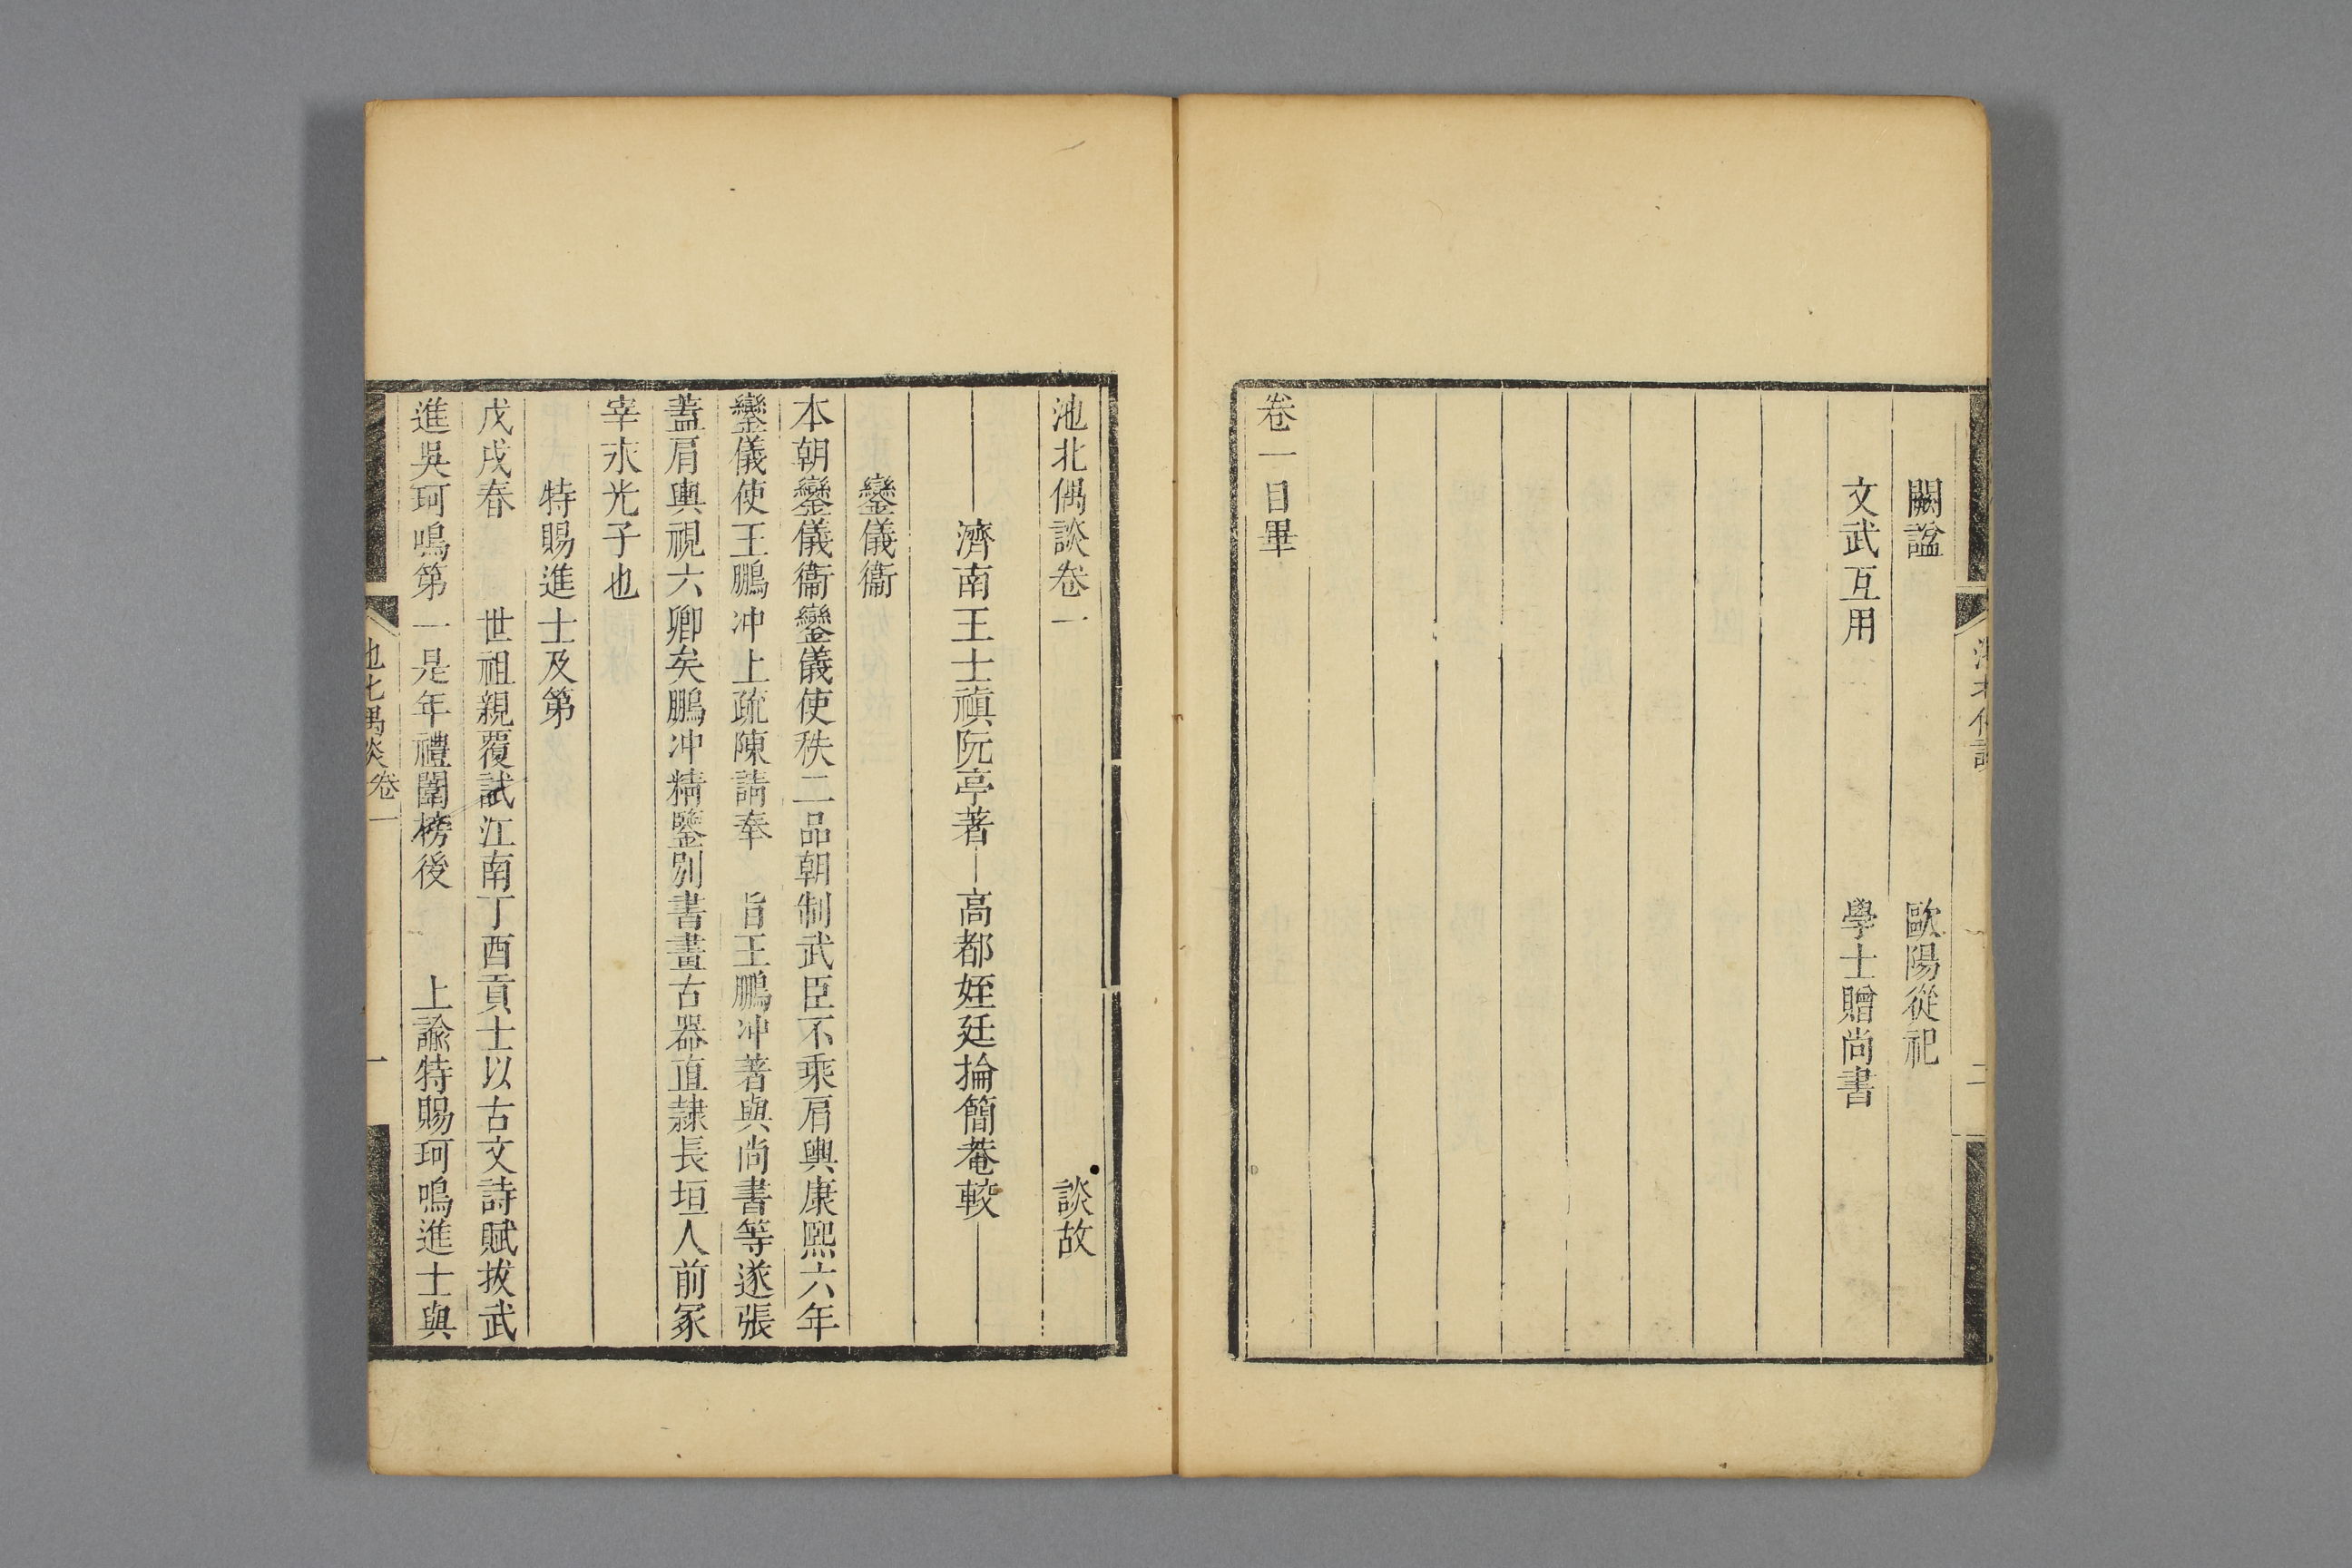 闕諡 歐陽從祀
文武互用 學士贈尚書
卷一目畢
池北偶談卷一 談故
濟南王士禛阮亭著 高都姪廷掄簡菴較
鑾儀衞
本朝鑾儀衞鑾儀使秩二品朝制武臣不乘肩輿康熙六年
鑾儀使王鵬冲上疏陳請奉 旨王鵬冲著與尚書等遂張
蓋肩輿視六卿矣鵬冲精鑒別書畫古器直隸長垣人前冢
宰永光子也
特賜進士及第
戊戌春 世祖親覆試江南丁酉貢士以古文詩賦拔武
進吳珂鳴第一是年禮闈榜後 上諭特賜珂鳴進士與
池北偶談卷一 一